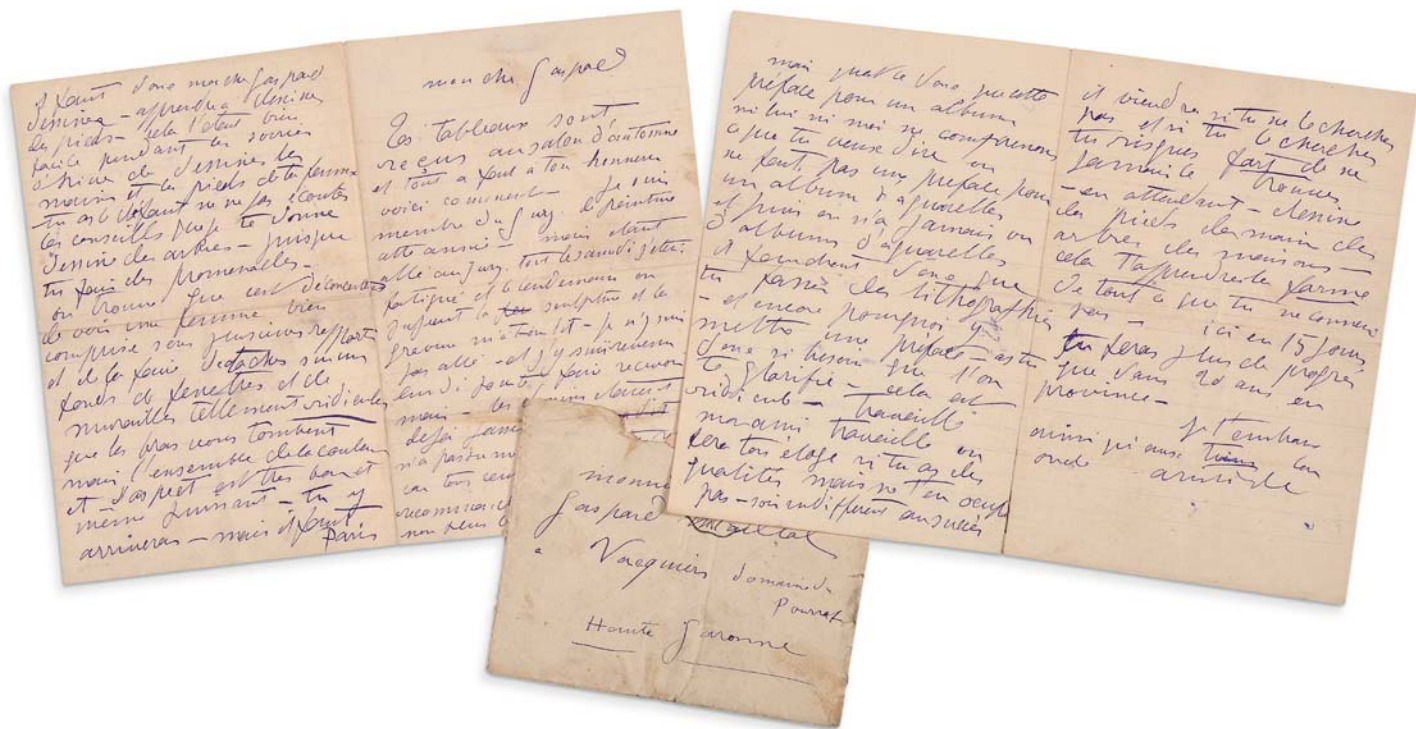 Il faut donc mon cher Gaspard
dessiner – apprendre a dessiner
les pieds – cela t'etant bien
facile pendant les soirées
d'hiver de dessiner les
mains et les pieds de ta femme
tu as le défaut de ne pas ecouter
les conseils que je te donne
dessine des arbres – puisque
tu fais des promenades –
on trouve que c'est déconcertant
de voir une femme bien
comprise sous plusieurs rapports
et de la faire detacher sur un
fonds de fenetres et de
murailles tellement ridicules
que les bras vous tombent
mais l'ensemble de la couleur
et l'aspect est tres bon et
même puissant – tu y
arriveras – mais il faut
Paris
mon cher Gaspard
Tes tableaux sont
reçus au salon d'automne
et tout a fait a ton honneur
voici comment – je suis
membre du jury de peinture
cette année – mais etant
allé au jury tout le samedi j'etais
fatigué et le lendemain on
jugeait la sculpture et la
gravure – je n'y suis
pas allé – et j'y suis revenu
lundi pour faire recevoir
mais – les
deja
n'a pas
car tous ceux
reconnaissance
non plus
monsieur
Gaspard Maillol
a Vacquiers domaine de
Haute Garonne
mais quelle donc que cette
préface pour un album
ni lui ni moi ne comprenons
ce que tu veux dire on
ne fait pas une préface pour
un album d'aquarelles
et puis on n'a jamais vu
d'albums d'aquarelles
il faudrait donc que
tu fasses des lithographies
– et encore pourquoi y
mettre une préface – as tu
donc si besoin que l'on
te glorifie – cela est
ridicule – travaille
mon ami travaille on
fera ton éloge si tu as des
qualités mais ne t'en occupe
pas – sois indifferent au succès
il viendra si tu ne le cherches
pas et si tu le cherches
tu risques fort de ne
jamais le trouver
– en attendant – dessine
des pieds des mains des
arbres des maisons –
cela t'apprendra la forme
de tout ce que tu ne connais
pas – ici en 15 jours
tu feras plus de progrès
que dans 20 ans en
province –
Je t'embrasse
ainsi qu'aux tiens ton
oncle aristide